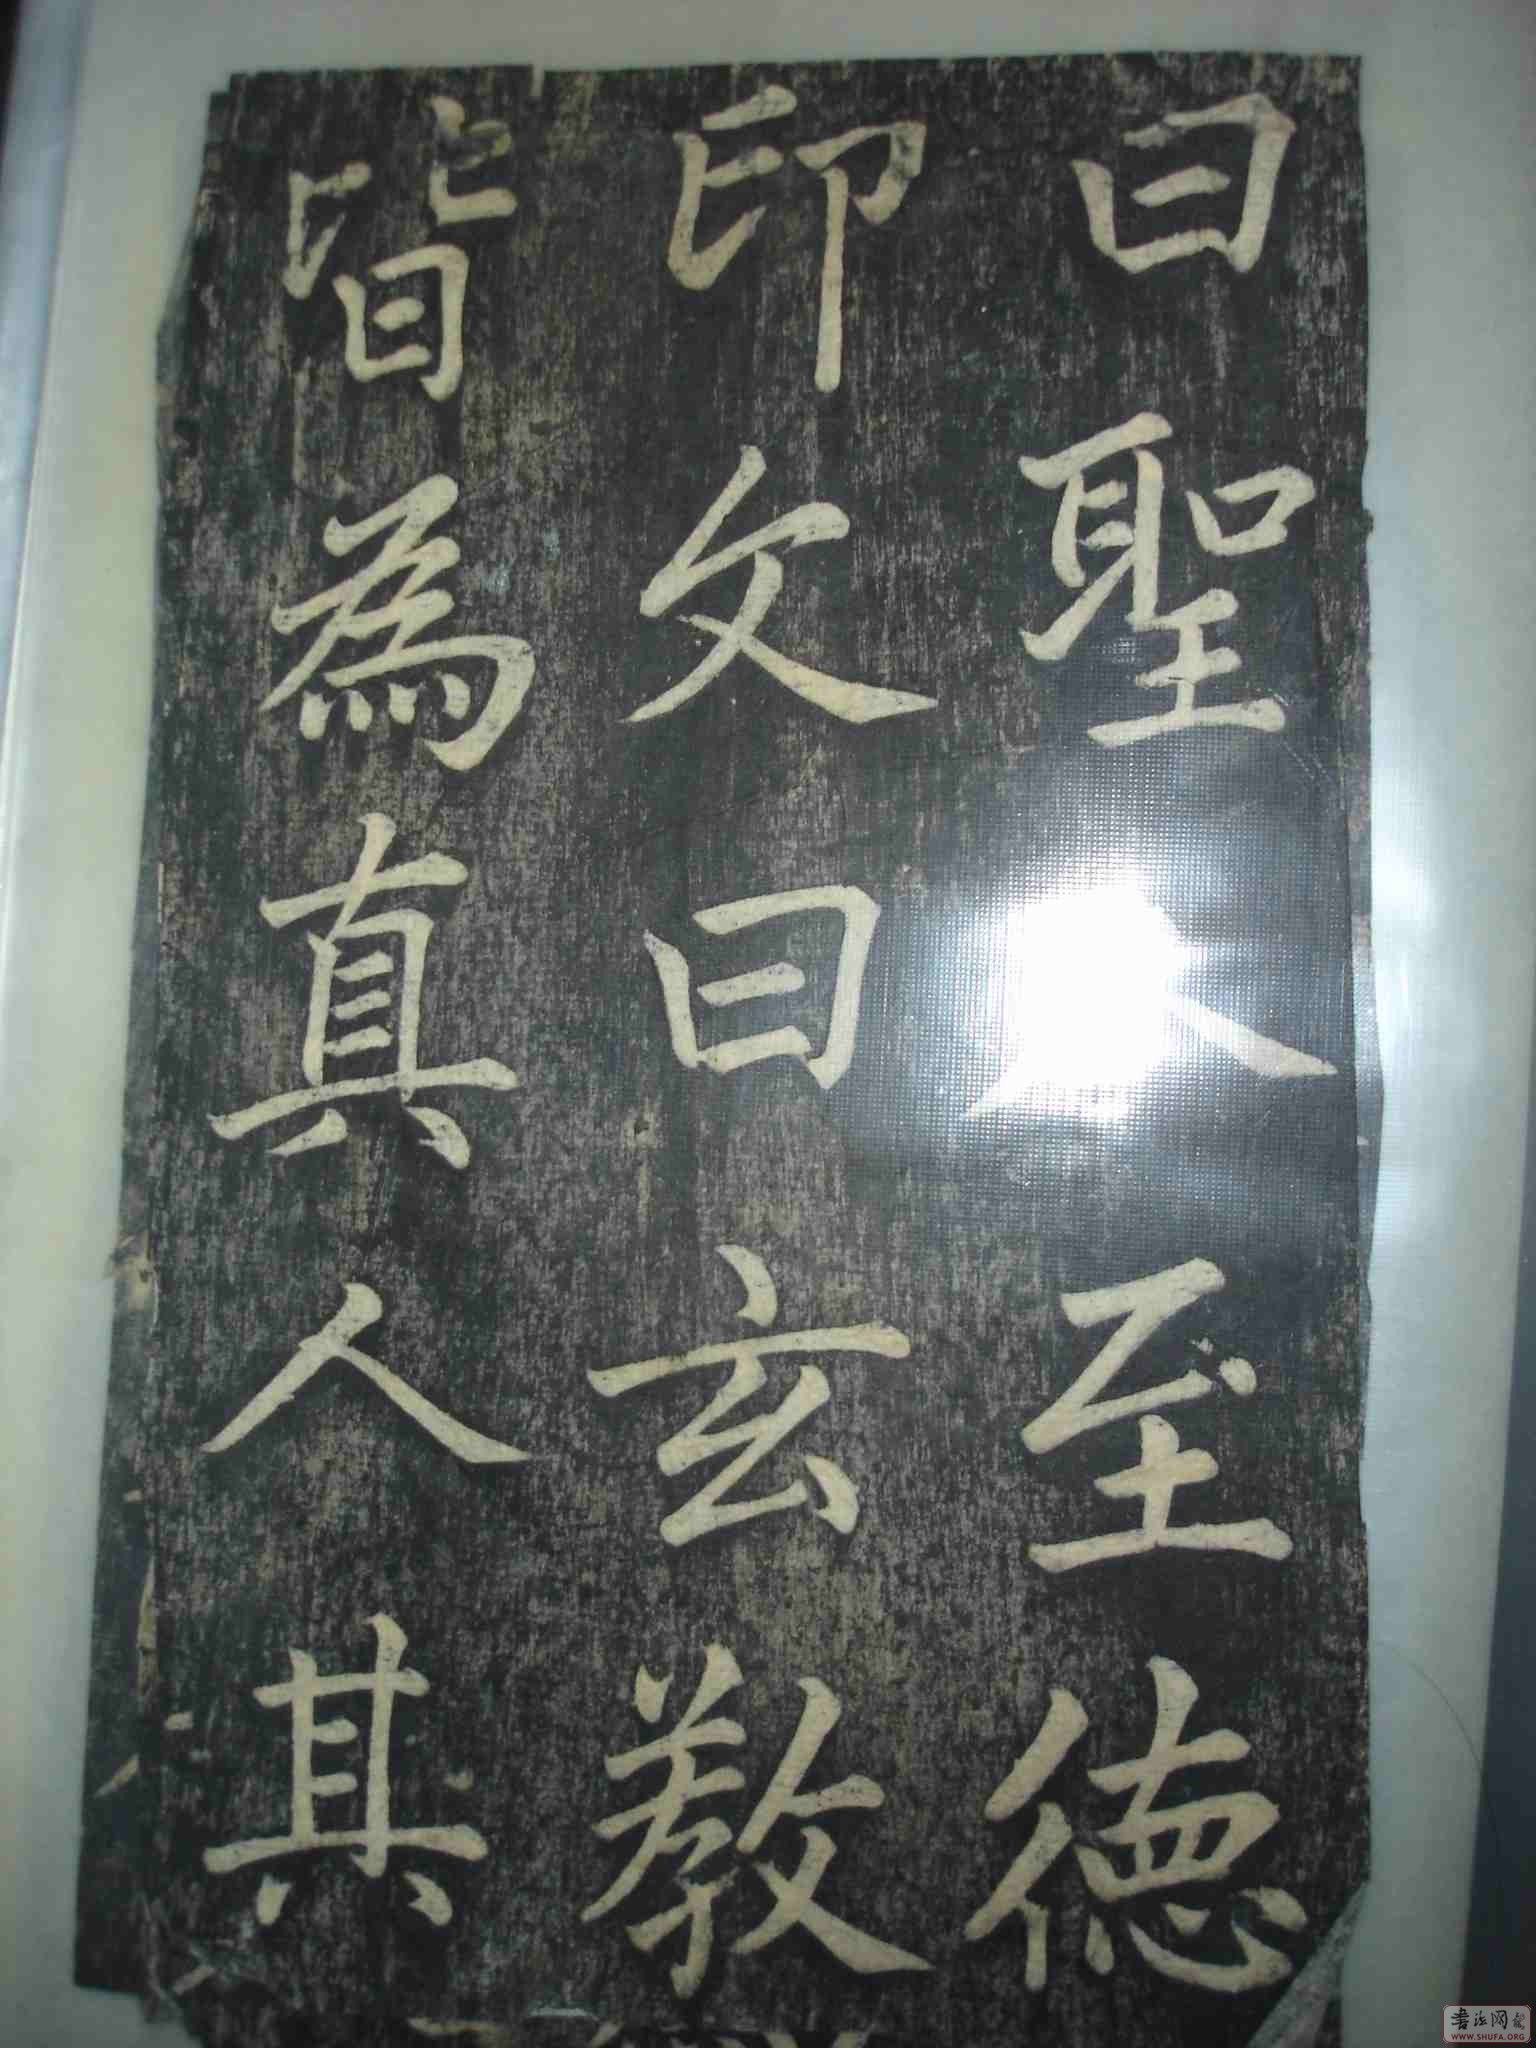 曰聖至德
印文曰玄教
皆為真人其
书法网
WWW.SHUFA.ORG